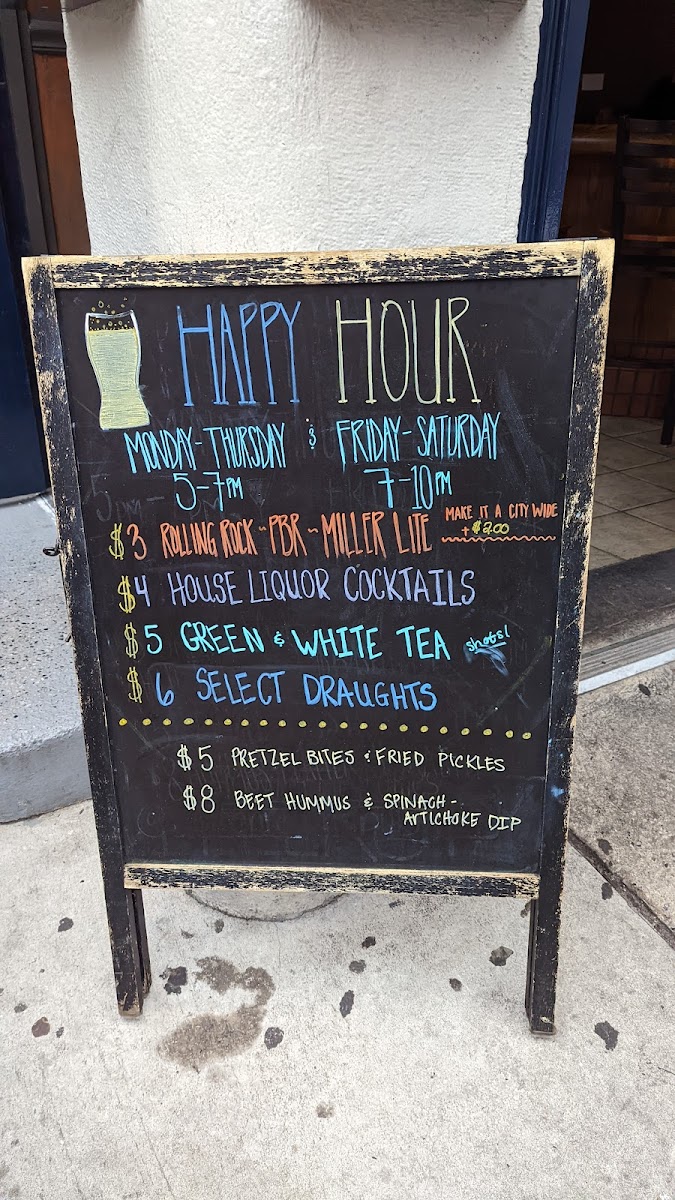 HAPPY HOUR
MONDAY-THURSDAY & FRIDAY-SATURDAY
5-7PM 7-10PM
$3 ROLLING ROCK ~ PBR ~ MILLER LITE MAKE IT A CITY WIDE
+$2.00
$4 HOUSE LIQUOR COCKTAILS
$5 GREEN & WHITE TEA shots!
$6 SELECT DRAUGHTS
$5 PRETZEL BITES & FRIED PICKLES
$8 BEET HUMMUS & SPINACH-
ARTICHOKE DIP